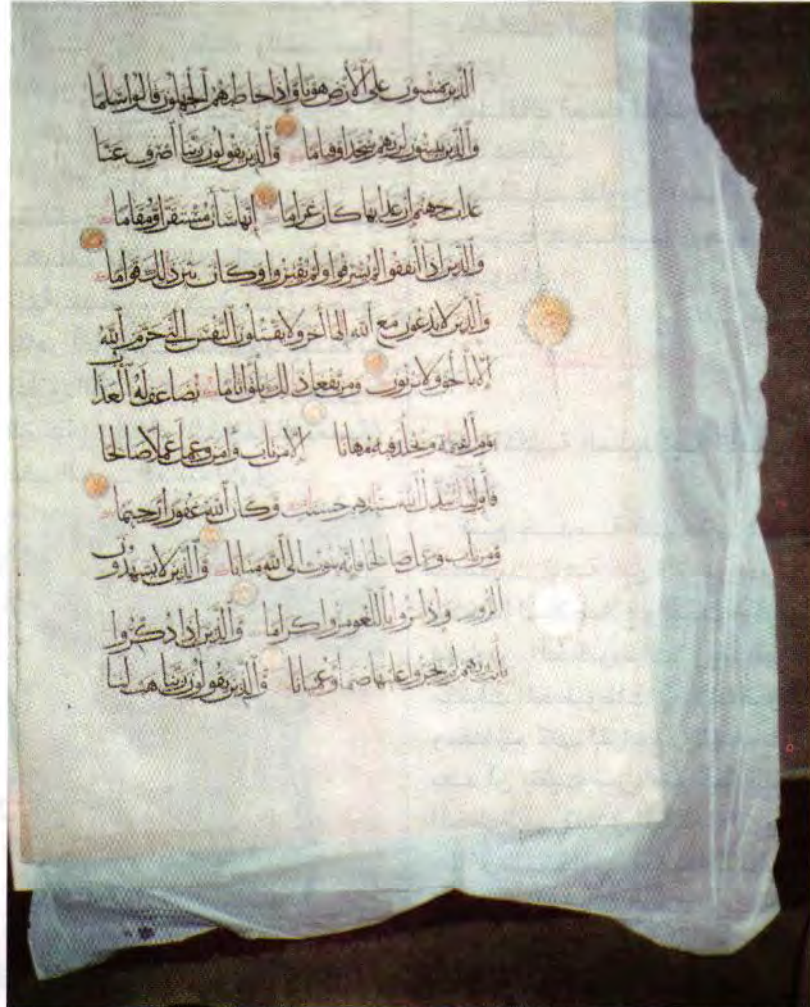 ٱلَّذِينَ يَمْشُونَ عَلَى ٱلْأَرْضِ هَوْنًا وَإِذَا خَاطَبَهُمُ ٱلْجَٰهِلُونَ قَالُوا۟ سَلَٰمًا
وَٱلَّذِينَ يَبِيتُونَ لِرَبِّهِمْ سُجَّدًا وَقِيَٰمًا وَٱلَّذِينَ يَقُولُونَ رَبَّنَا ٱصْرِفْ عَنَّا
عَذَابَ جَهَنَّمَ إِنَّ عَذَابَهَا كَانَ غَرَامًا إِنَّهَا سَآءَتْ مُسْتَقَرًّا وَمُقَامًا
وَٱلَّذِينَ إِذَآ أَنفَقُوا۟ لَمْ يُسْرِفُوا۟ وَلَمْ يَقْتُرُوا۟ وَكَانَ بَيْنَ ذَٰلِكَ قَوَامًا
وَٱلَّذِينَ لَا يَدْعُونَ مَعَ ٱللَّهِ إِلَٰهًا ءَاخَرَ وَلَا يَقْتُلُونَ ٱلنَّفْسَ ٱلَّتِى حَرَّمَ ٱللَّهُ
إِلَّا بِٱلْحَقِّ وَلَا يَزْنُونَ وَمَن يَفْعَلْ ذَٰلِكَ يَلْقَ أَثَامًا يُضَٰعَفْ لَهُ ٱلْعَذَابُ
يَوْمَ ٱلْقِيَٰمَةِ وَيَخْلُدْ فِيهِۦ مُهَانًا إِلَّا مَن تَابَ وَءَامَنَ وَعَمِلَ عَمَلًا صَٰلِحًا
فَأُو۟لَٰٓئِكَ يُبَدِّلُ ٱللَّهُ سَيِّـَٔاتِهِمْ حَسَنَٰتٍ وَكَانَ ٱللَّهُ غَفُورًا رَّحِيمًا
وَمَن تَابَ وَعَمِلَ صَٰلِحًا فَإِنَّهُۥ يَتُوبُ إِلَى ٱللَّهِ مَتَابًا وَٱلَّذِينَ لَا يَشْهَدُونَ
ٱلزُّورَ وَإِذَا مَرُّوا۟ بِٱللَّغْوِ مَرُّوا۟ كِرَامًا وَٱلَّذِينَ إِذَا ذُكِّرُوا۟
بِـَٔايَٰتِ رَبِّهِمْ لَمْ يَخِرُّوا۟ عَلَيْهَا صُمًّا وَعُمْيَانًا وَٱلَّذِينَ يَقُولُونَ رَبَّنَا هَبْ لَنَا